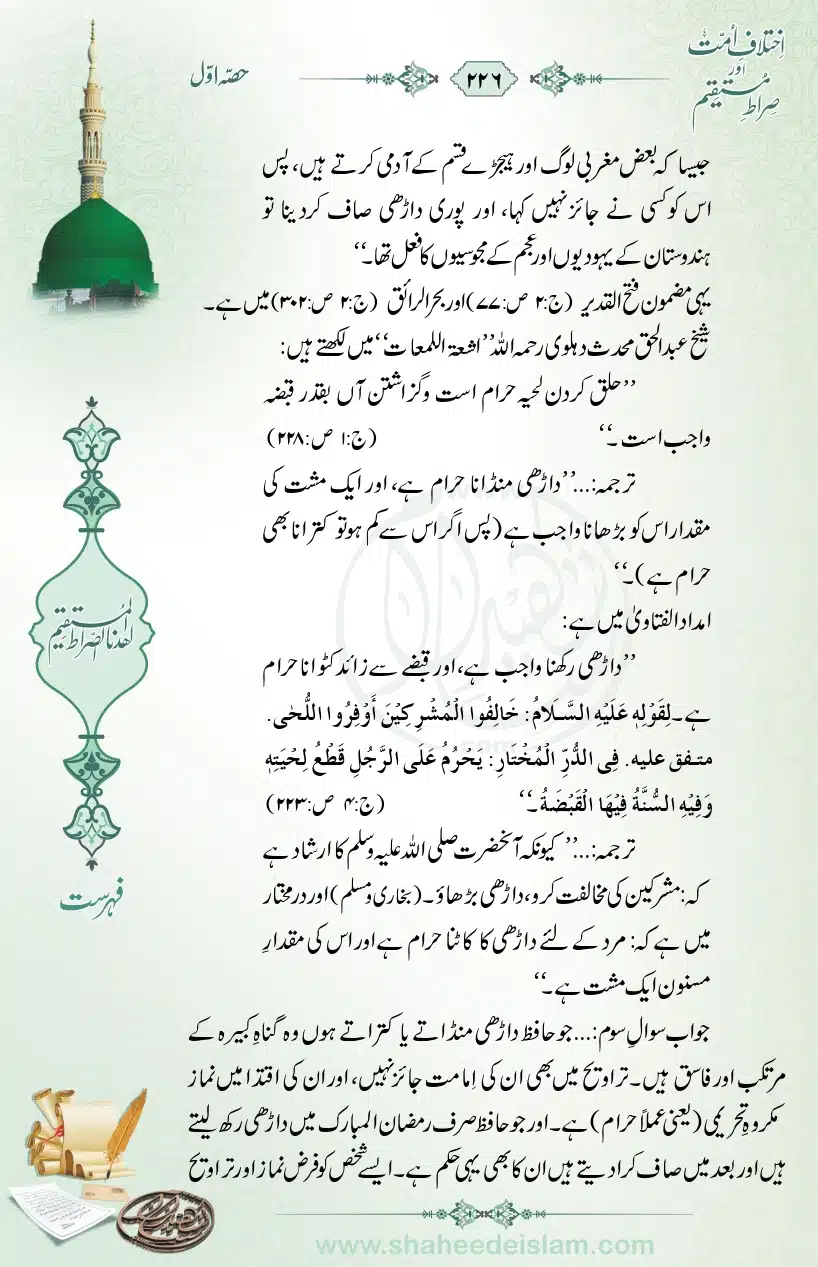 اِختلافِ اُمّت
اور
صِراطِ مُستقیم
۲۲۶
حصّہ اوّل
جیسا کہ بعض مغربی لوگ اور ہیجڑے قسم کے آدمی کرتے ہیں، پس
اس کو کسی نے جائز نہیں کہا، اور پوری داڑھی صاف کردینا تو
ہندوستان کے یہودیوں اور عجم کے مجوسیوں کا فعل تھا۔‘‘
یہی مضمون فتح القدیر (ج:۲ ص:۷۷) اور بحر الرائق (ج:۲ ص:۳۰۲) میں ہے۔
شیخ عبدالحق محدث دہلوی رحمہ اللہ ’’اشعۃ اللمعات‘‘ میں لکھتے ہیں:
’’حلق کردن لحیہ حرام است وگزاشتن آں بقدر قبضہ
واجب است۔‘‘ (ج:۱ ص:۲۲۸)
ترجمہ:...’’داڑھی منڈانا حرام ہے، اور ایک مشت کی
مقدار اس کو بڑھانا واجب ہے (پس اگر اس سے کم ہو تو کترانا بھی
حرام ہے)۔‘‘
امداد الفتاویٰ میں ہے:
’’داڑھی رکھنا واجب ہے، اور قبضے سے زائد کٹوانا حرام
ہے۔ لِقَوْلِهٖ عَلَيْهِ السَّلَامُ: خَالِفُوا الْمُشْرِكِيْنَ أَوْفِرُوا اللُّحٰى.
متفق عليه. فِى الدُّرِّ الْمُخْتَارِ: يَحْرُمُ عَلَى الرَّجُلِ قَطْعُ لِحْيَتِهٖ
وَفِيْهِ السُّنَّةُ فِيْهَا الْقَبْضَةُ۔‘‘ (ج:۴ ص:۲۲۳)
ترجمہ:...’’کیونکہ آنحضرت صلی اللہ علیہ وسلم کا ارشاد ہے
کہ: مشرکین کی مخالفت کرو، داڑھی بڑھاؤ۔ (بخاری و مسلم) اور درمختار
میں ہے کہ: مرد کے لئے داڑھی کا کاٹنا حرام ہے اور اس کی مقدارِ
مسنون ایک مشت ہے۔‘‘
جواب سوالِ سوم:...جو حافظ داڑھی منڈاتے یا کتراتے ہوں وہ گناہِ کبیرہ کے
مرتکب اور فاسق ہیں۔ تراویح میں بھی ان کی اِمامت جائز نہیں، اور ان کی اقتدا میں نماز
مکروہِ تحریمی (یعنی عملاً حرام) ہے۔ اور جو حافظ صرف رمضان المبارک میں داڑھی رکھ لیتے
ہیں اور بعد میں صاف کرادیتے ہیں ان کا بھی یہی حکم ہے۔ ایسے شخص کو فرض نماز اور تراویح
اھدنا الصراط المستقیم
فہرست
www.shaheedeislam.com